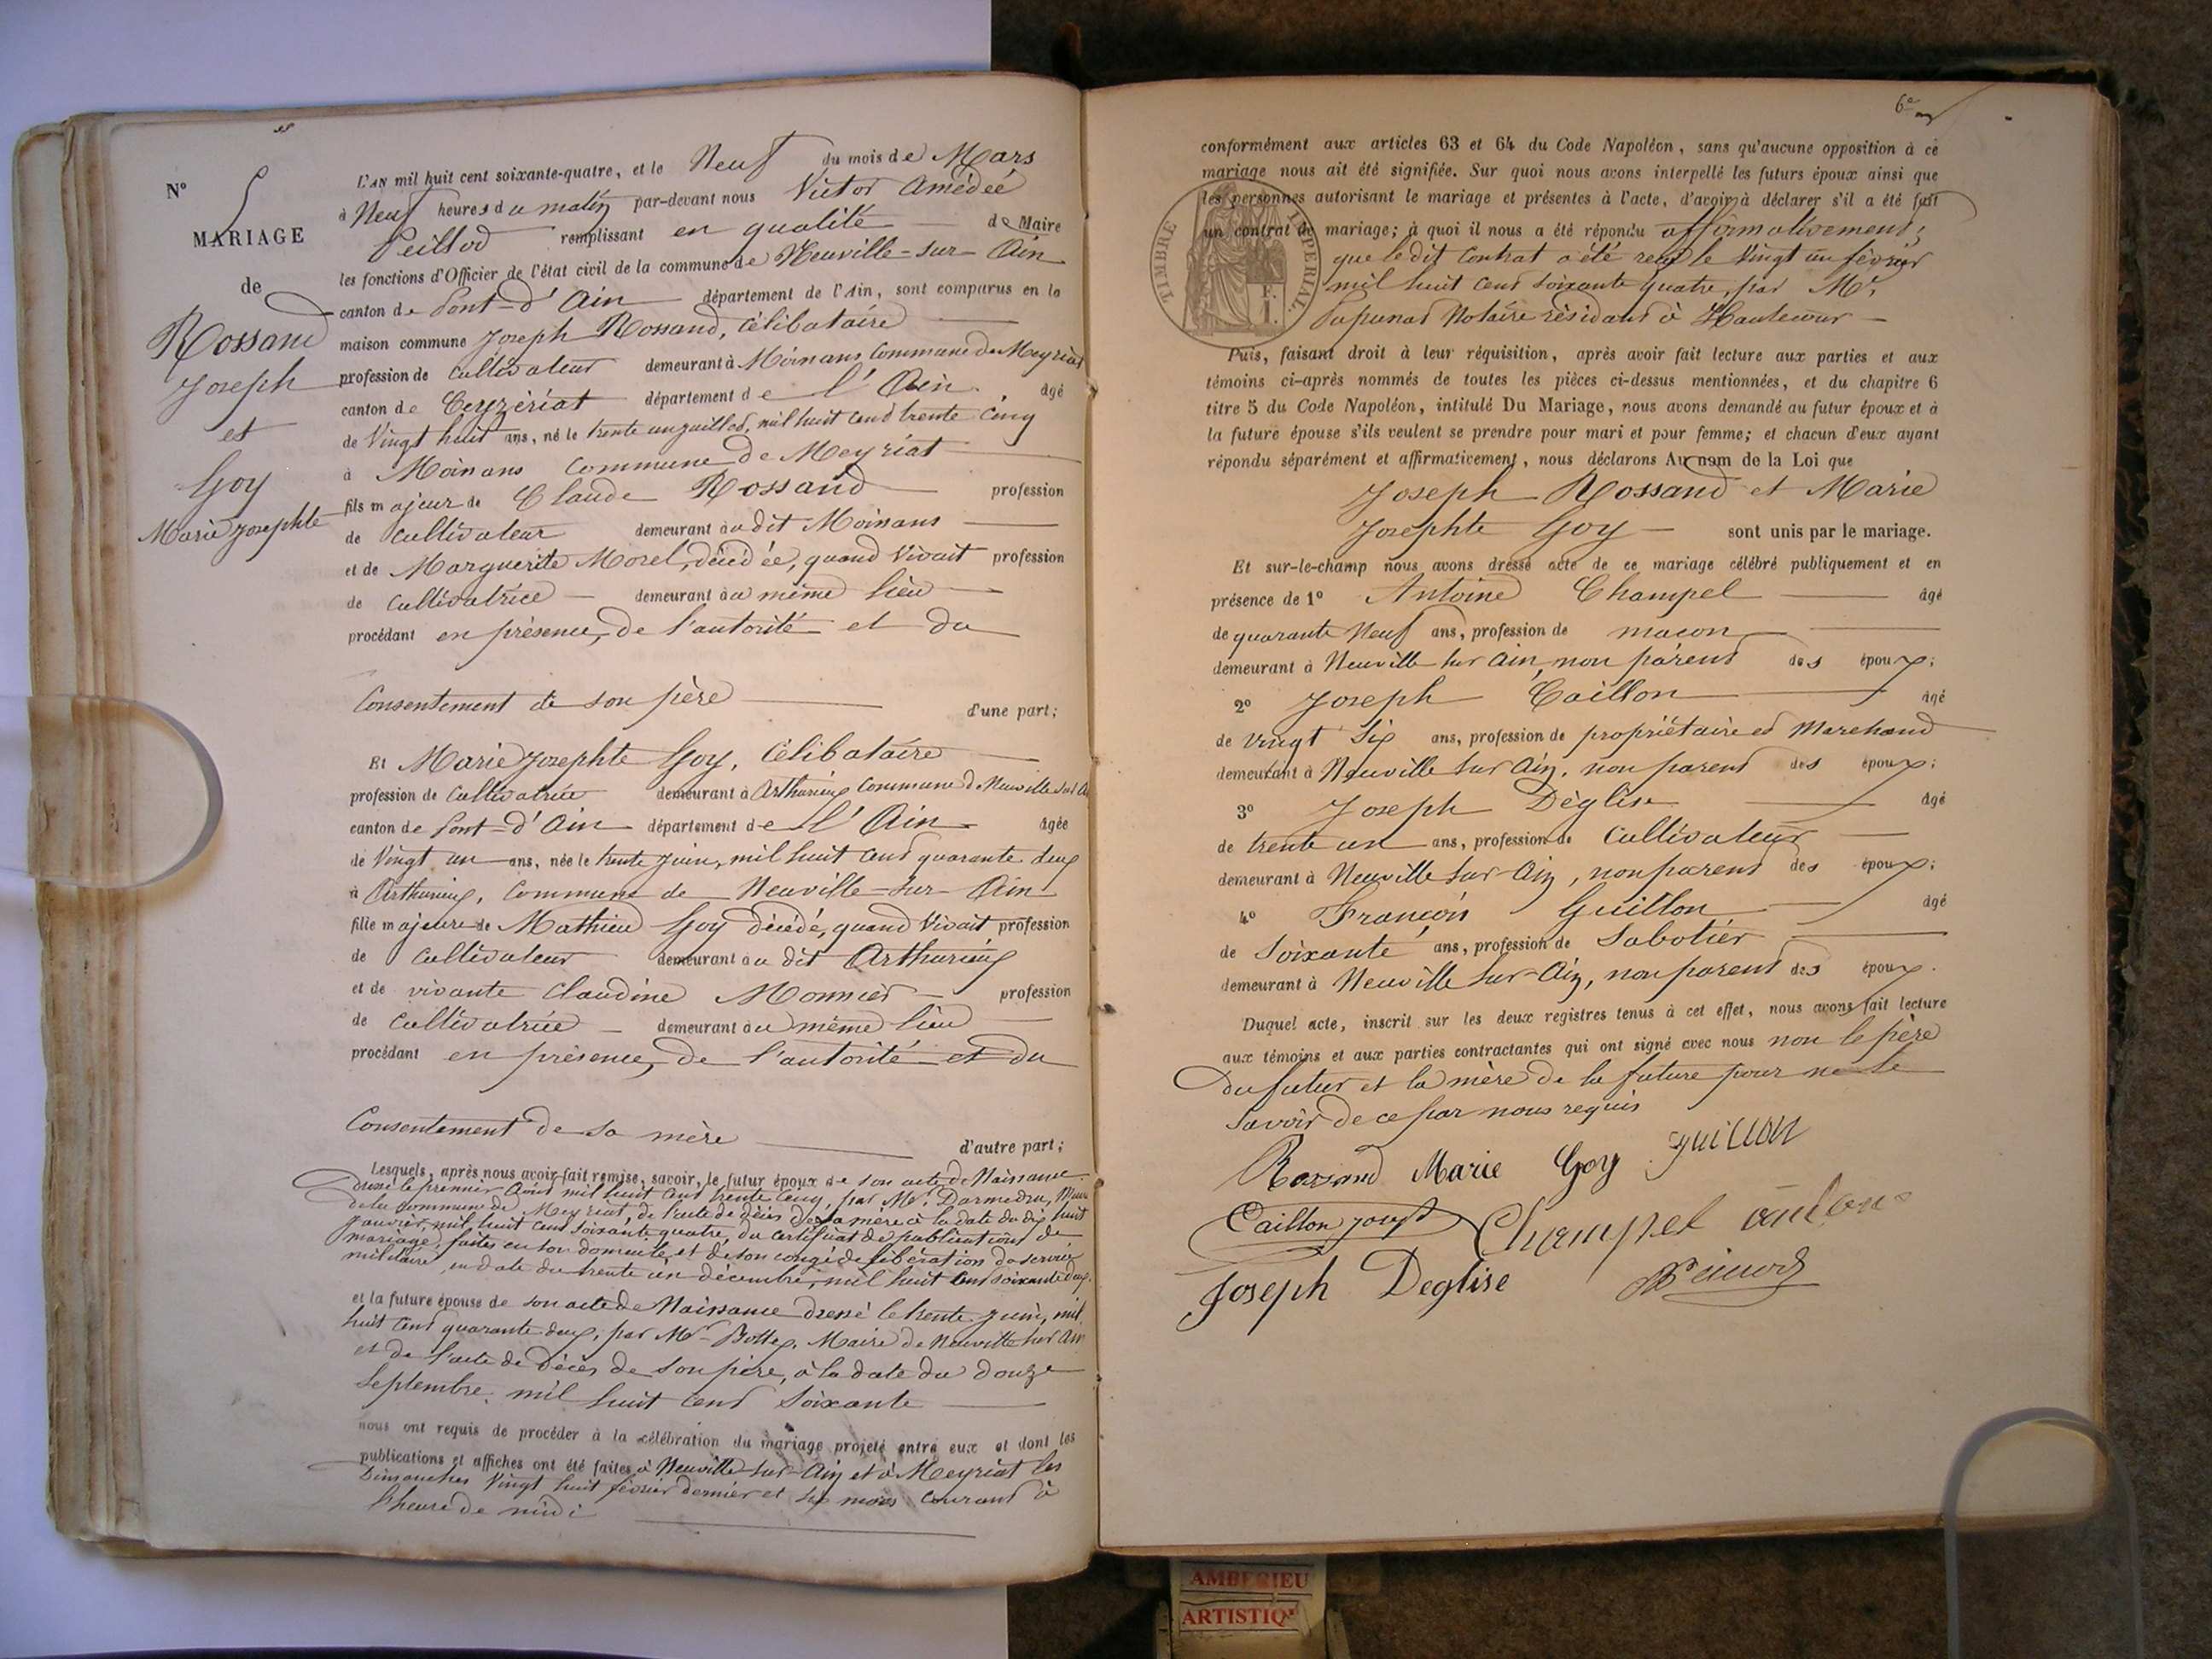 N° 5
MARIAGE
de
Rossand
Joseph
et
Goy
Marie Josephte
L'AN mil huit cent soixante-quatre, et le Neuf du mois de Mars
à Neuf heures du matin par-devant nous Victor Amédée
Peillod remplissant en qualité de Maire
les fonctions d'Officier de l'état civil de la commune de Neuville-sur-Ain
canton de Pont-d'Ain département de l'Ain, sont comparus en la
maison commune Joseph Rossand, Célibataire
profession de Cultivateur demeurant à Moinans, Commune de Meyriat
canton de Ceyzériat département de l'Ain âgé
de Vingt huit ans, né le trente un juillet, mil huit cent trente cinq
à Moinans Commune de Meyriat
fils majeur de Claude Rossand profession
de Cultivateur demeurant au dit Moinans
et de Marguerite Morel, décédée, quand Vivait profession
de Cultivatrice demeurant au même lieu
procédant en présence, de l'autorité et du
Consentement de son père d'une part;
Et Marie Josephte Goy, Célibataire
profession de Cultivatrice demeurant à Arthurieux Commune de Neuville sur A
canton de Pont-d'Ain département de l'Ain âgée
de Vingt un ans, née le trente Juin, mil huit cent quarante deux
à Arthurieux, Commune de Neuville-sur-Ain
fille majeure de Mathieu Goy décédé, quand Vivait profession
de Cultivateur demeurant au dit Arthurieux
et de vivante Claudine Monnier profession
de Cultivatrice demeurant au même lieu
procédant en présence, de l'autorité et du
Consentement de sa mère d'autre part;
Lesquels, après nous avoir fait remise, savoir, le futur époux de son acte de Naissance
dressé le premier Août mil huit cent trente cinq, par Mr. Darmedru, Maire
de la Commune de Meyriat, de l'acte de décès de sa mère à la date du dix huit
Janvier, mil huit cent soixante quatre, du certificat de publications de
mariage, faites en son domicile et de son congé de libération du service
militaire, en date du trente un décembre, mil huit cent soixante deux,
et la future épouse de son acte de Naissance dressé le trente Juin, mil
huit cent quarante deux, par Mr Bottex, Maire de Neuville sur Ain
et de l'acte de Décès de son père, à la date du douze
Septembre, mil huit cent soixante
nous ont requis de procéder à la célébration du mariage projeté entre eux et dont les
publications et affiches ont été faites à Neuville-sur-Ain et à Meyriat les
Dimanches Vingt huit février dernier et six mars Courant à
l'heure de midi
6e
conformément aux articles 63 et 64 du Code Napoléon, sans qu'aucune opposition à ce
mariage nous ait été signifiée. Sur quoi nous avons interpellé les futurs époux ainsi que
les personnes autorisant le mariage et présentes à l'acte, d'avoir à déclarer s'il a été fait
un contrat de mariage; à quoi il nous a été répondu affirmativement;
que le dit Contrat a été reçu le Vingt un février
mil huit cent soixante quatre, par Me.
Notaire résidant à Hautecour
TIMBRE IMPERIAL
1 F.
Puis, faisant droit à leur réquisition, après avoir fait lecture aux parties et aux
témoins ci-après nommés de toutes les pièces ci-dessus mentionnées, et du chapitre 6
titre 5 du Code Napoléon, intitulé Du Mariage, nous avons demandé au futur époux et à
la future épouse s'ils veulent se prendre pour mari et pour femme; et chacun d'eux ayant
répondu séparément et affirmativement, nous déclarons Au nom de la Loi que
Joseph Rossand et Marie
Josephte Goy sont unis par le mariage.
Et sur-le-champ nous avons dressé acte de ce mariage célébré publiquement et en
présence de 1° Antoine Champel âgé
de quarante Neuf ans, profession de maçon
demeurant à Neuville sur Ain, non parent des époux;
2° Joseph Caillon âgé
de vingt Six ans, profession de propriétaire et Marchand
demeurant à Neuville sur Ain, non parent des époux;
3° Joseph Déglise âgé
de trente un ans, profession de Cultivateur
demeurant à Neuville sur Ain, non parent des époux;
4° François Guillon âgé
de Soixante ans, profession de Sabotier
demeurant à Neuville sur-Ain, non parent des époux.
Duquel acte, inscrit sur les deux registres tenus à cet effet, nous avons fait lecture
aux témoins et aux parties contractantes qui ont signé avec nous non le père
du futur et la mère de la future pour ne le
savoir de ce par nous requis
Rossand Marie Goy guillon
Caillon Joseph Champel
Joseph Deglise Peillod
AMBERIEU
ARTISTIQ